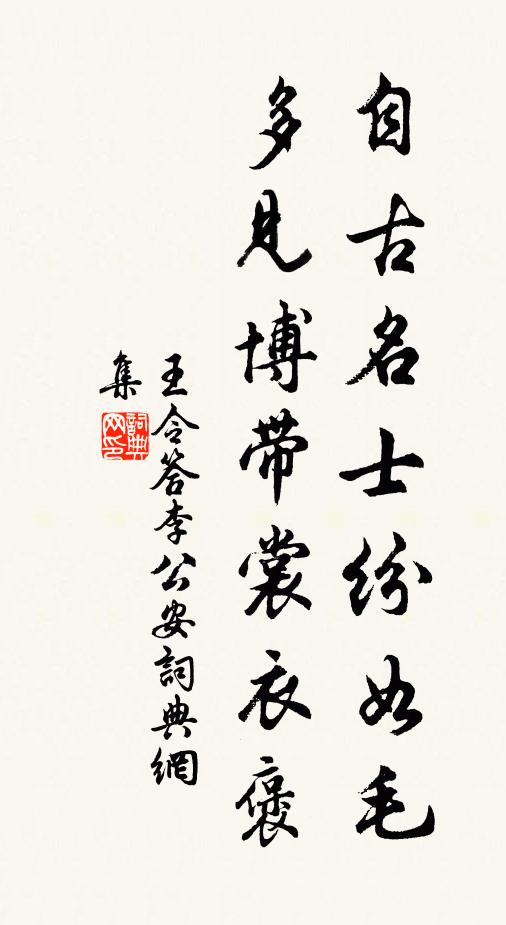 自古名士紛如毛
多見博带裳衣褒
王令答李公安詞典網
集
詞典网印